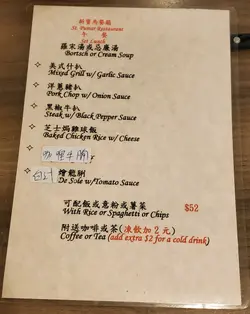 新寶馬餐廳
St. Pumar Restaurant
午餐
Set Lunch
羅宋湯或忌廉湯
Bortsch or Cream Soup
美式什扒
Mixed Grill w/ Garlic Sauce
洋蔥豬扒
Pork Chop w/ Onion Sauce
黑椒牛扒
Steak w/ Black Pepper Sauce
芝士焗雞球飯
Baked Chicken Rice w/ Cheese
咖哩牛腩
白汁 燴龍脷
De Sole w/Tomato Sauce
可配飯或意粉或薯菜
With Rice or Spaghetti or Chips
$52
附送咖啡或茶(凍飲加2元)
Coffee or Tea (add extra $2 for a cold drink)